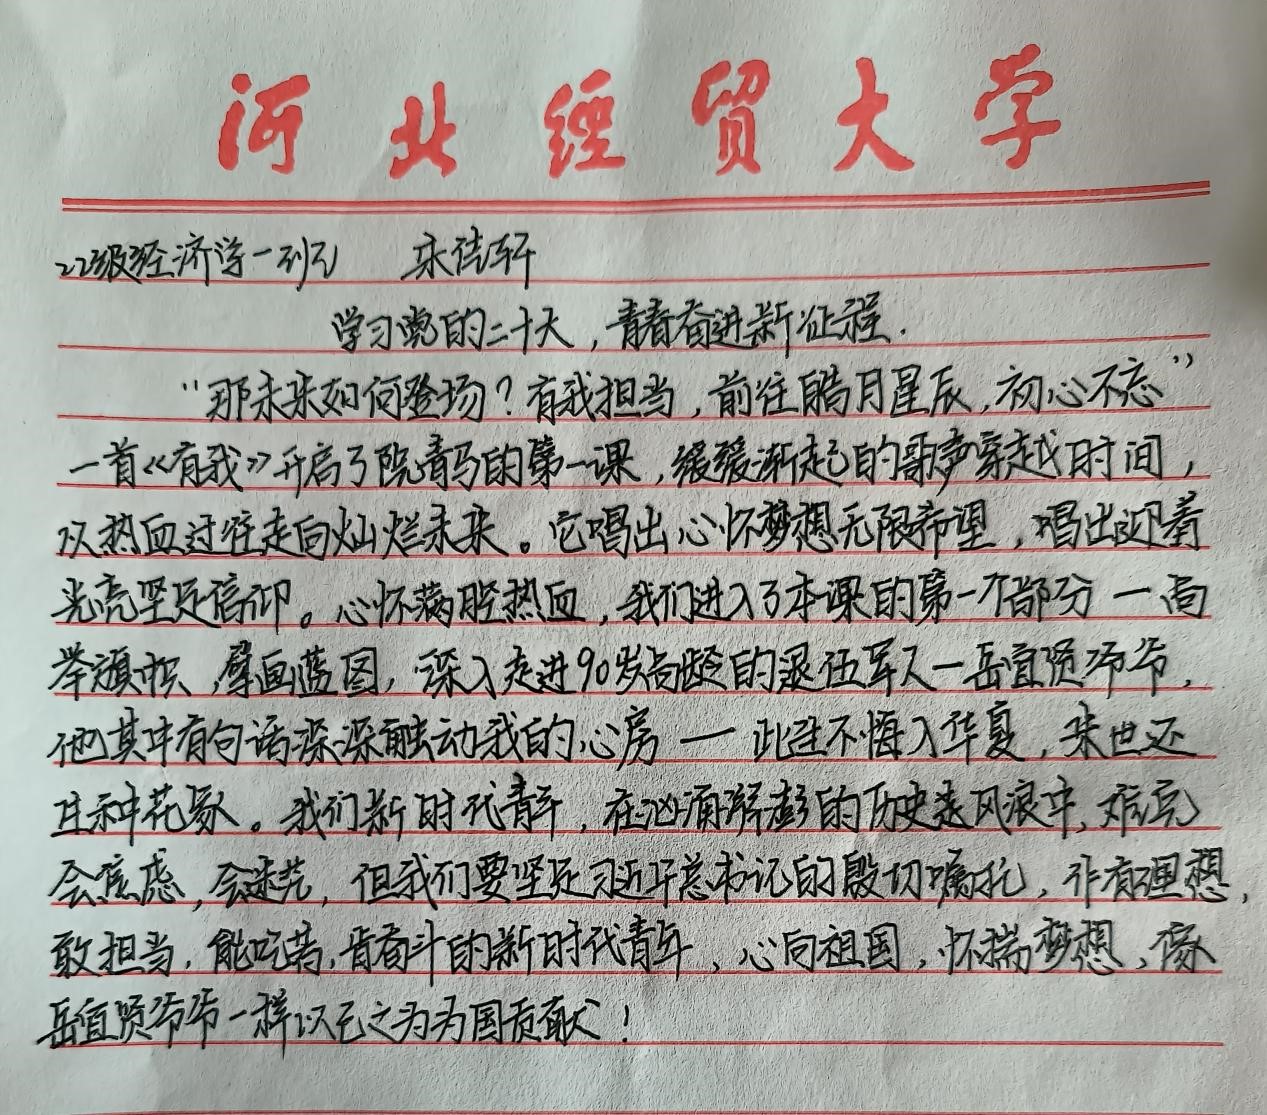 河北经贸大学
22级经济学一班 宋佳轩
学习党的二十大，青春奋进新征程.
“那未来如何登场？有我担当，前往皓月星辰，初心不忘”
一首《有我》开启了院青马的第一课，缓缓渐起的歌声穿越时间，
以热血过往走向灿烂未来。它唱出心怀梦想无限希望，唱出迎着
光亮坚定信仰。心怀满腔热血，我们进入了本课的第一个部分一高
举旗帜，擘画蓝图，深入走进90岁高龄的退伍军人一岳宜贤爷爷，
他其中有句话深深触动我的心房一此生不悔入华夏，来世还
在种花家。我们新时代青年，在汹涌澎湃的历史迭风浪中，难免
会焦虑，会迷茫，但我们要坚定习近平总书记的殷切嘱托，作有理想，
敢担当，能吃苦，肯奋斗的新时代青年，心向祖国，怀揣梦想，像
岳宜贤爷爷一样以己之为为国贡献！